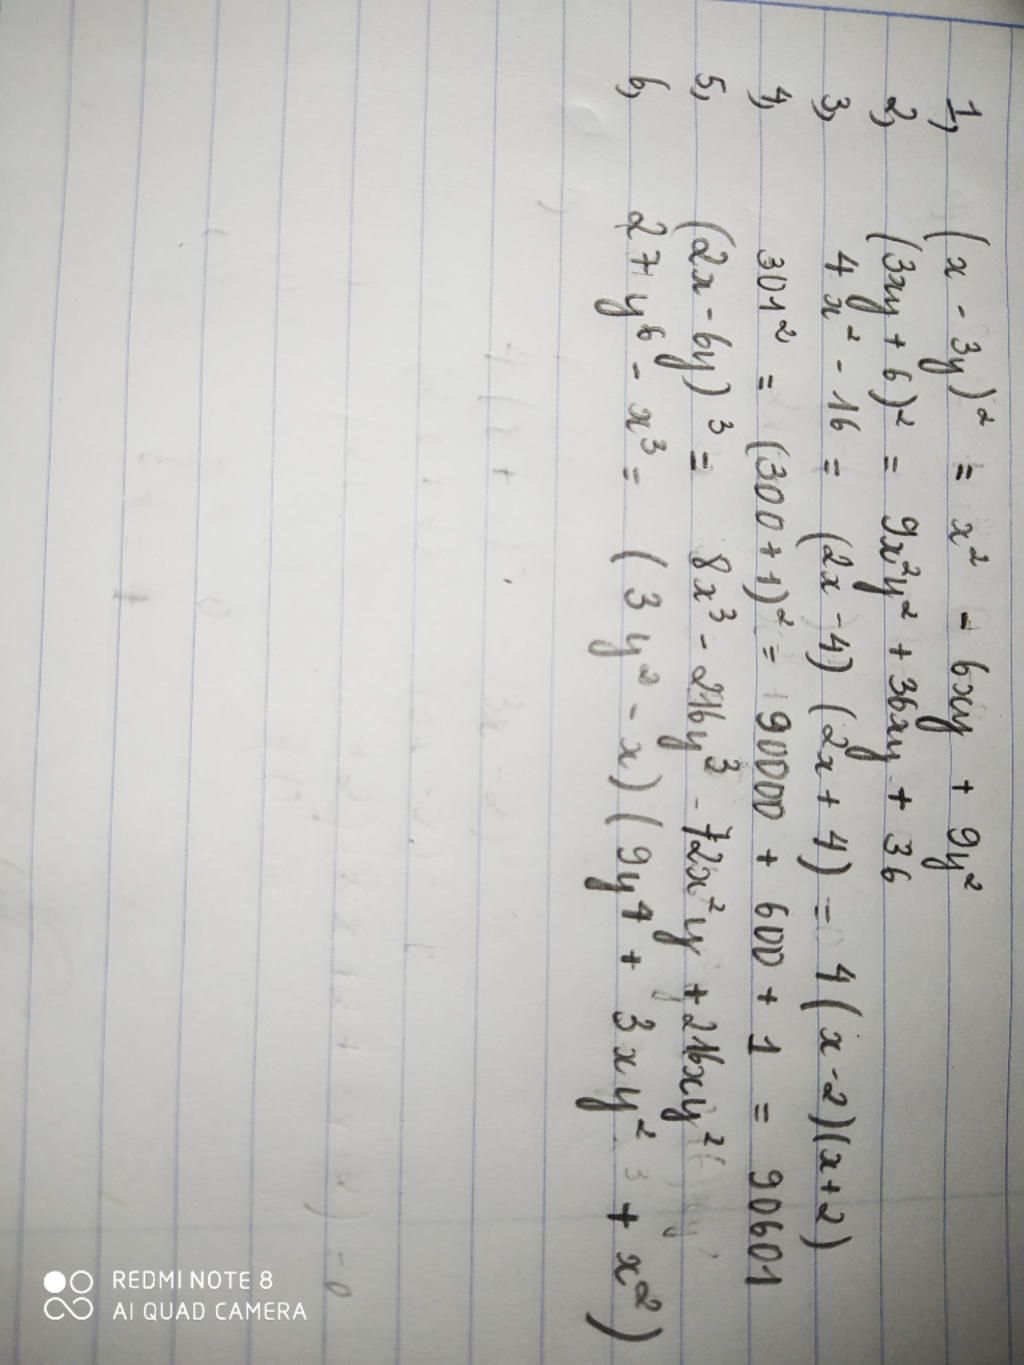 1, (x - 3y)² = x² - 6xy + 9y²
2, (3xy + 6)² = 9x²y² + 36xy + 36
3, 4x² - 16 = (2x - 4) (2x + 4) = 4(x - 2)(x + 2)
4, 301² = (300 + 1)² = 90000 + 600 + 1 = 90601
5, (2x - 6y)³ = 8x³ - 216y³ - 72x²y + 216xy²
6, 27y⁶ - x³ = (3y² - x) (9y⁴ + 3xy² + x²)
REDMI NOTE 8
AI QUAD CAMERA